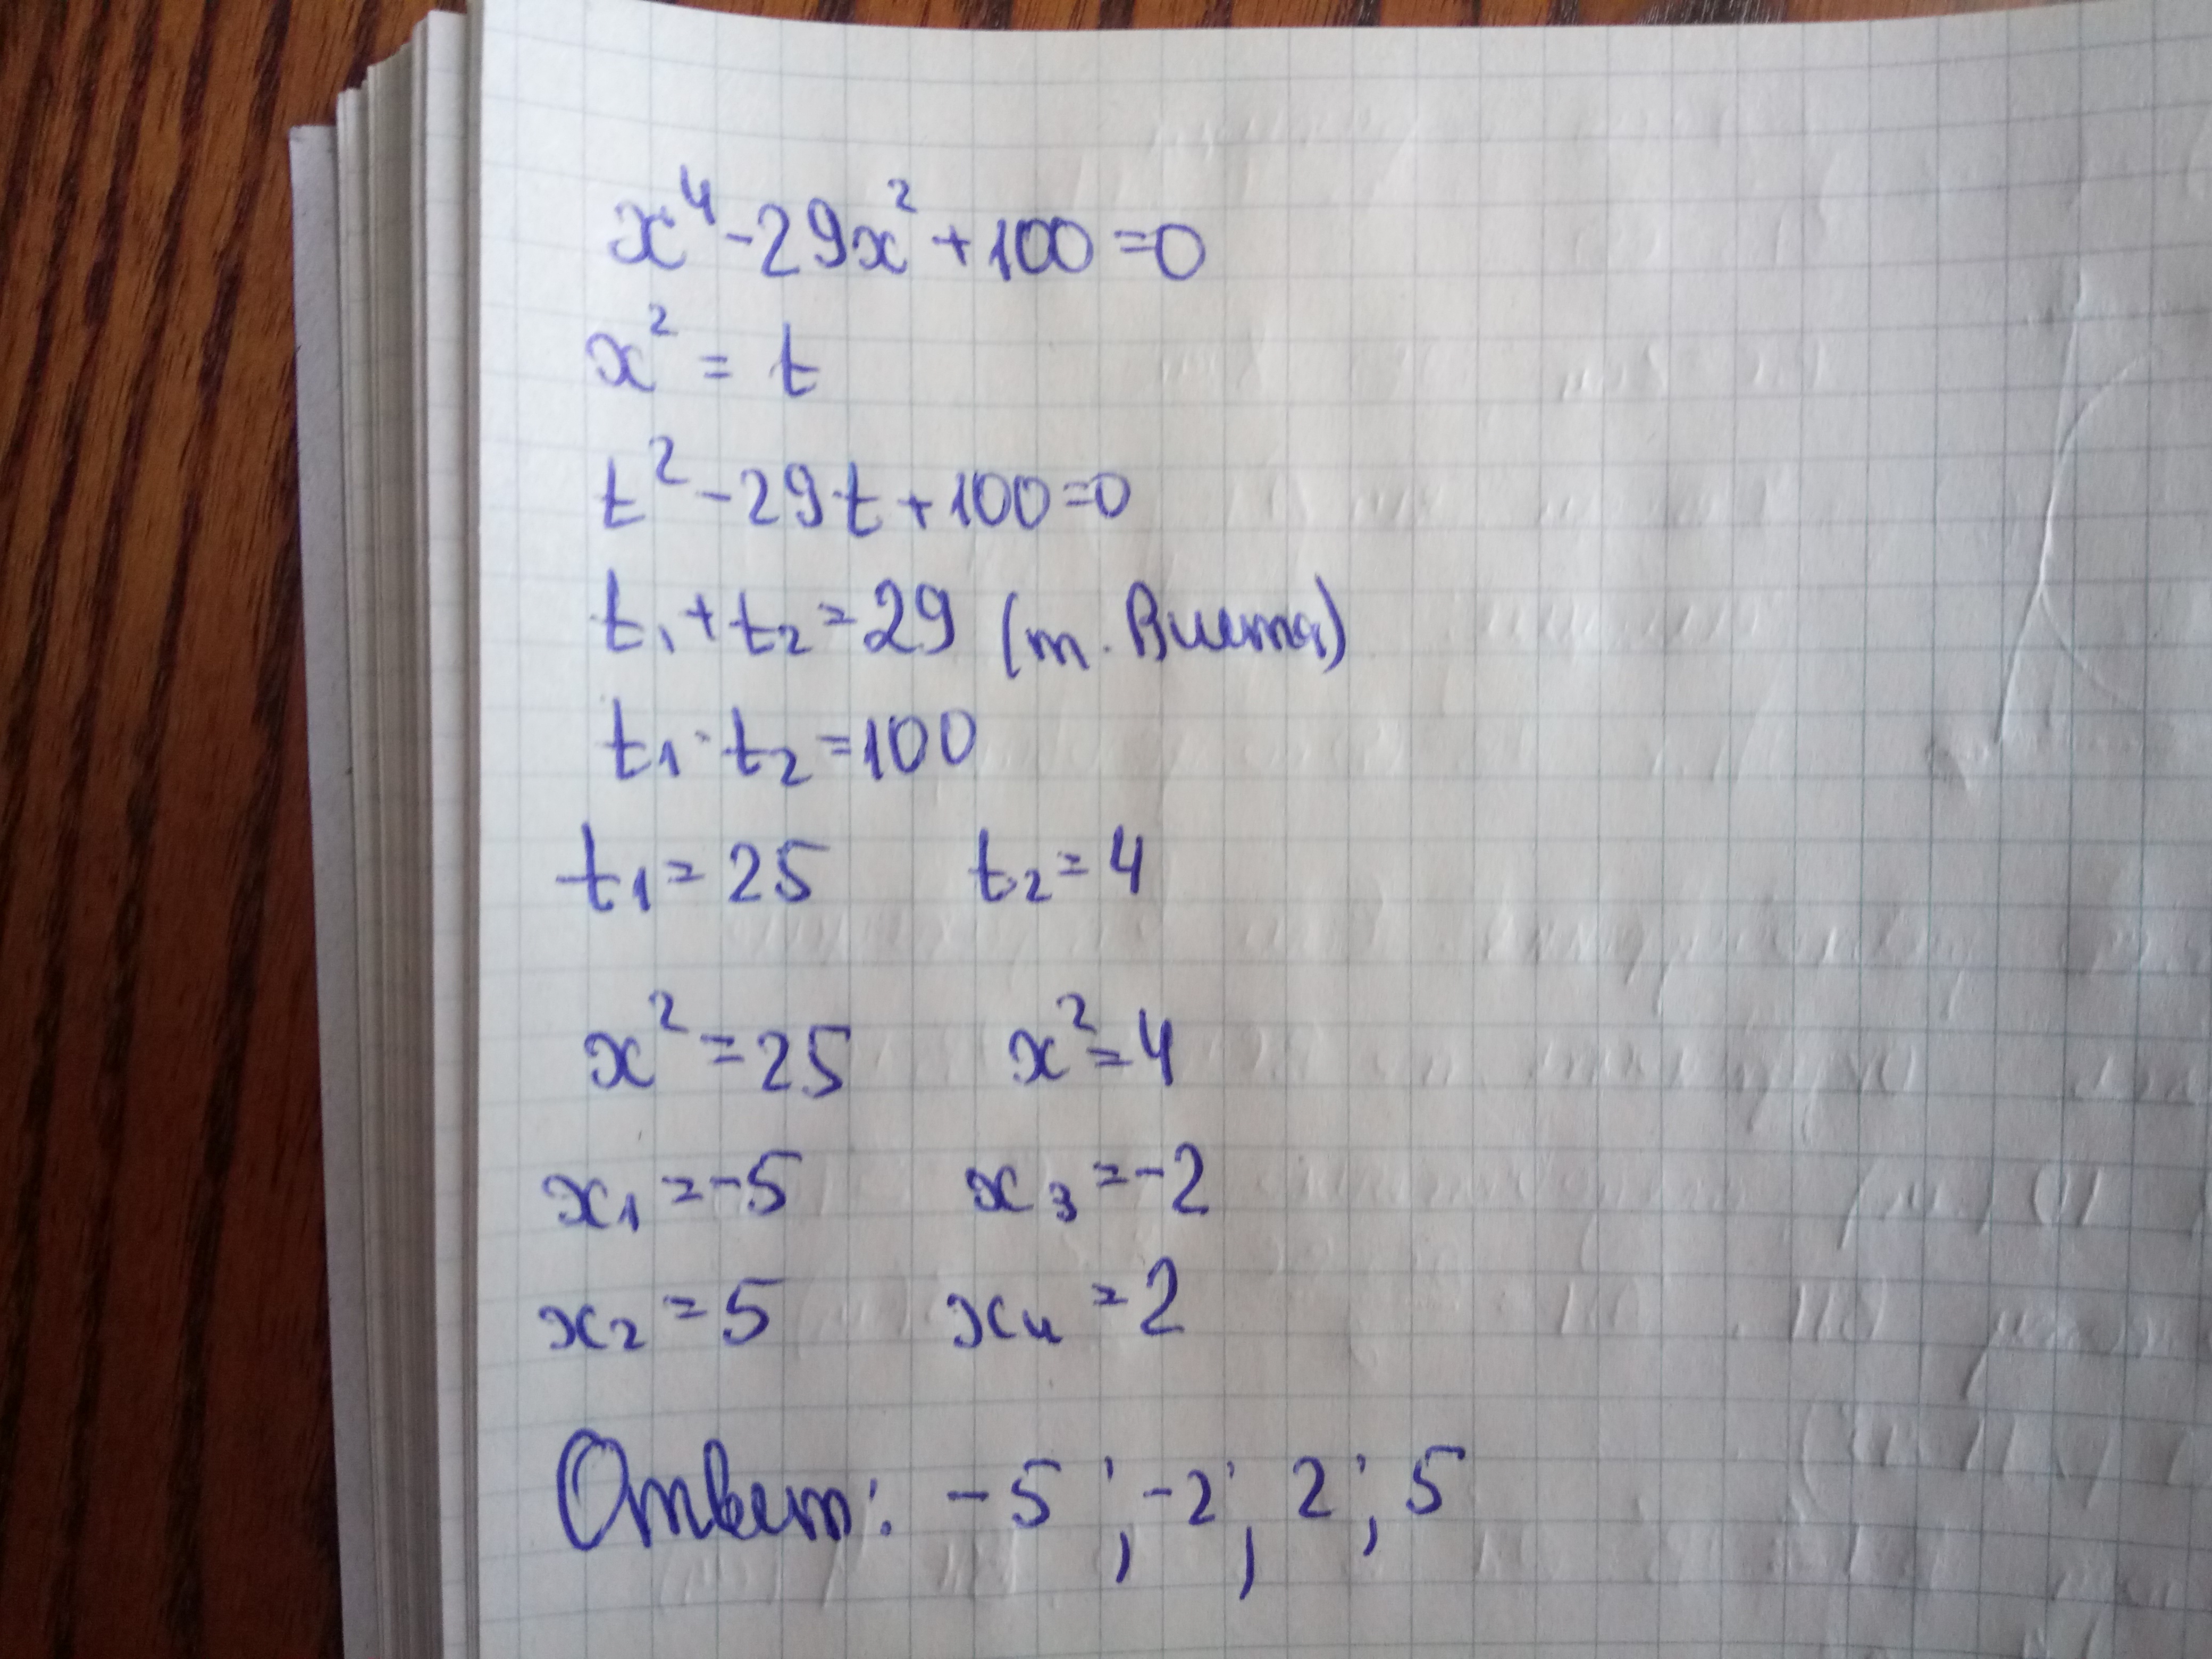 x⁴-29x²+100=0
x² = t
t²-29t+100=0
t₁+t₂=29 (т. Виета)
t₁·t₂=100
t₁=25 t₂=4
x²=25 x²=4
x₁=-5 x₃=-2
x₂=5 x₄=2
Ответ: -5; -2; 2; 5